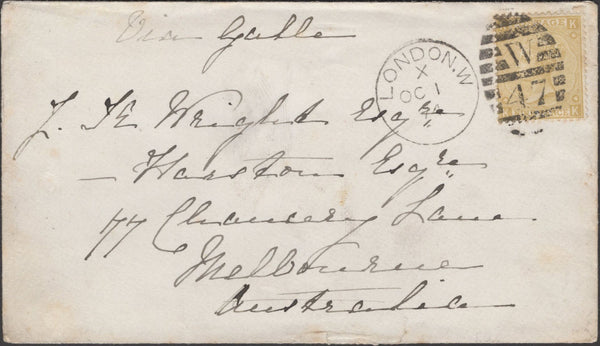 Via Galle
LONDON.W
X
OC 1
W
47
POSTAGE
K
K
J. H. Wright Esqre
— Harston Esqre
77 Chancery Lane
Melbourne
Australia